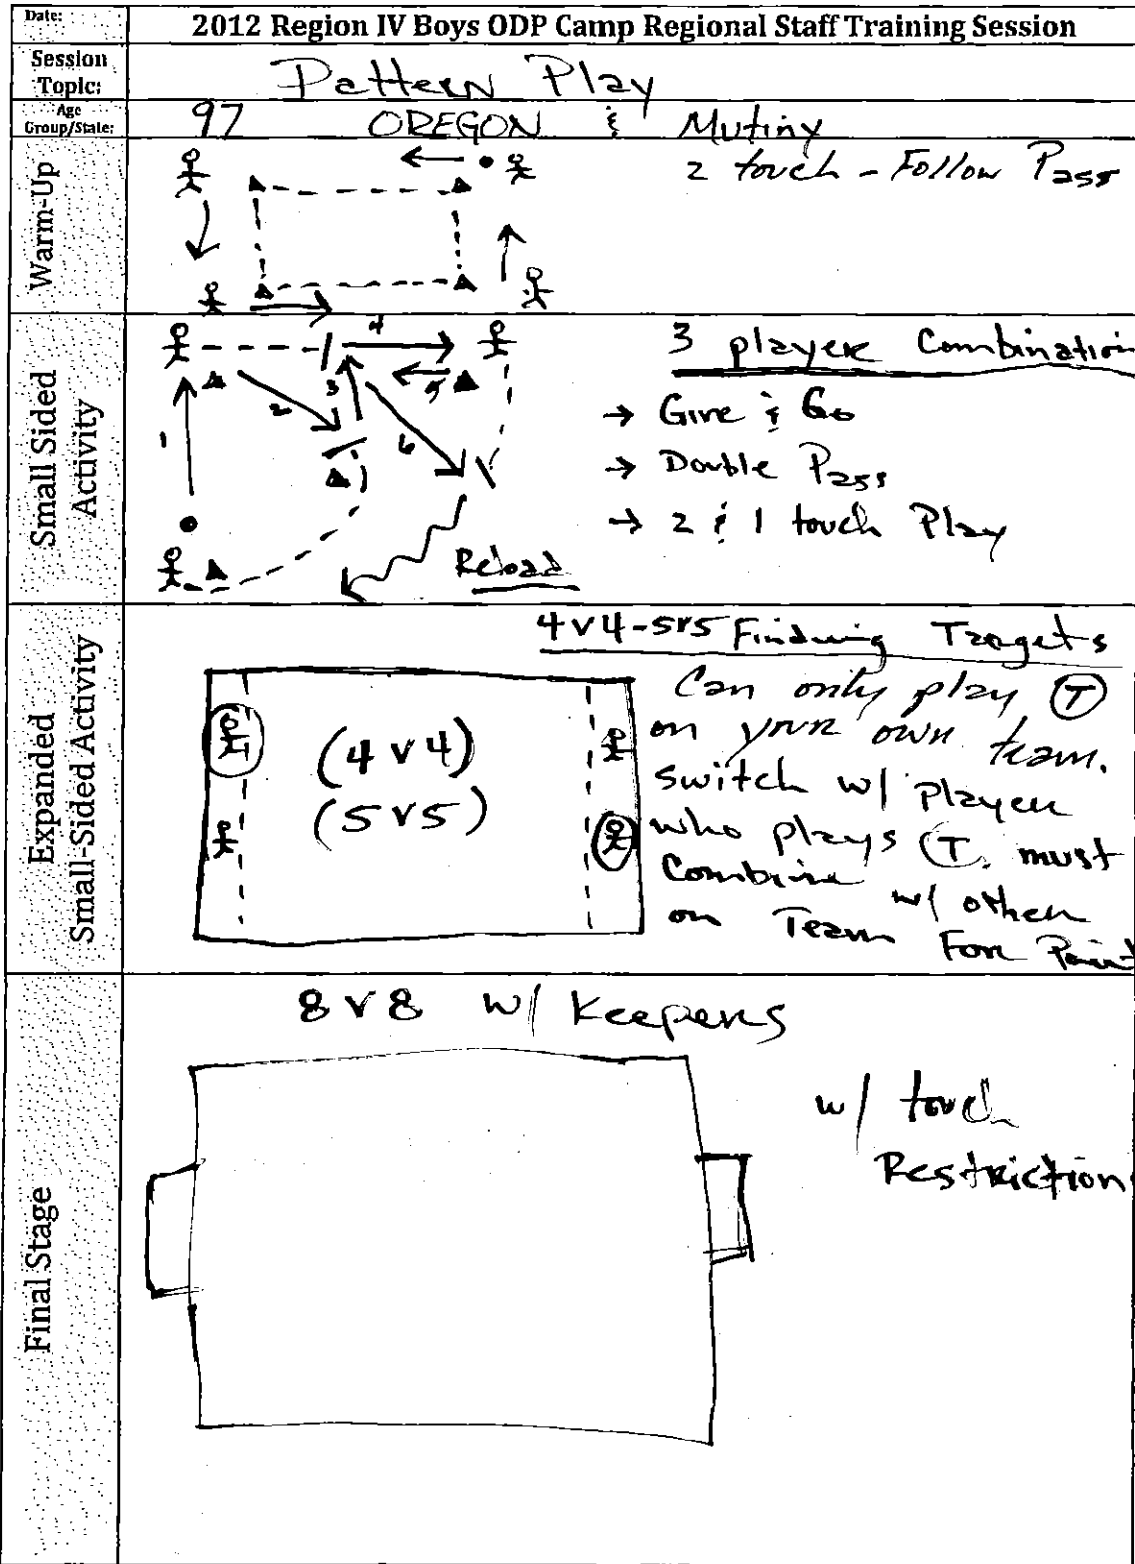 Date:
2012 Region IV Boys ODP Camp Regional Staff Training Session
Session
Topic:
Pattern Play
Age
Group/State:
97 OREGON & Mutiny
Warm-Up
2 touch - Follow Pass
Small Sided
Activity
1
2
3
4
5
6
Reload
3 player Combination
→ Give & Go
→ Double Pass
→ 2 & 1 touch Play
Expanded
Small-Sided Activity
4v4-5v5 Finding Targets
(4 v 4)
(5 v 5)
Can only play T
on your own team.
switch w/ player
who plays T. must
Combine w/ other
on Team For Point
Final Stage
8 v 8 w/ Keepers
w/ touch
Restriction